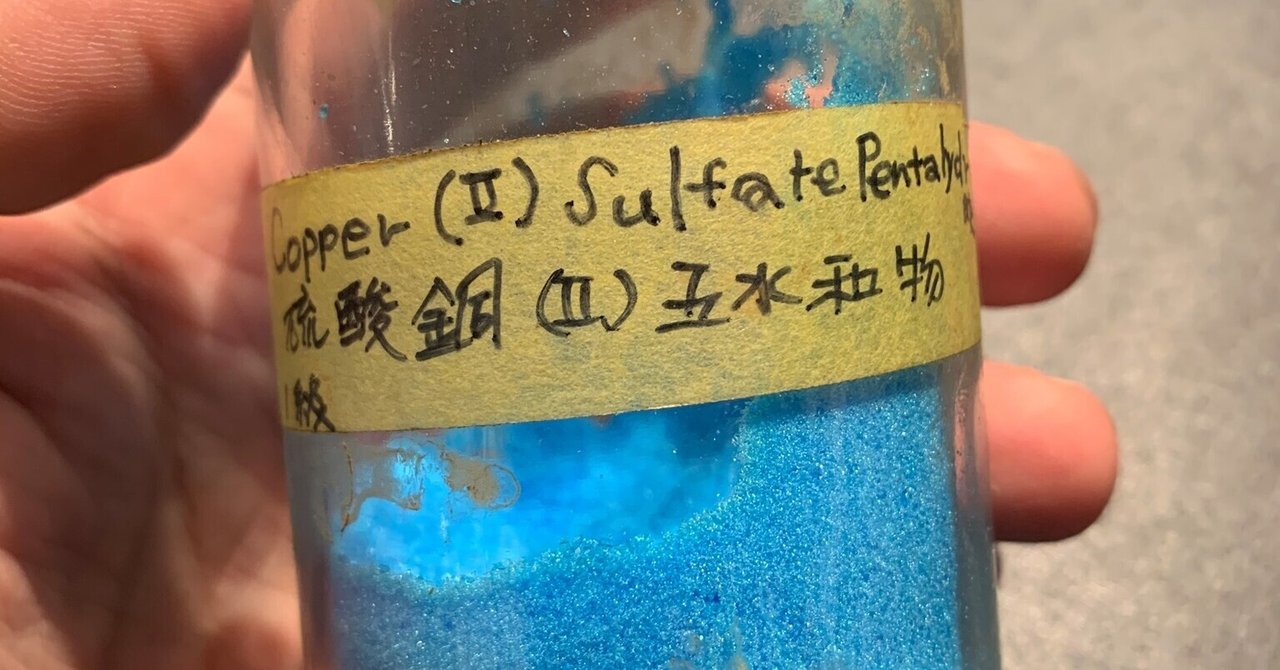 Copper (II) Sulfate Pentahyd
硫酸銅(II)五水和物
1級